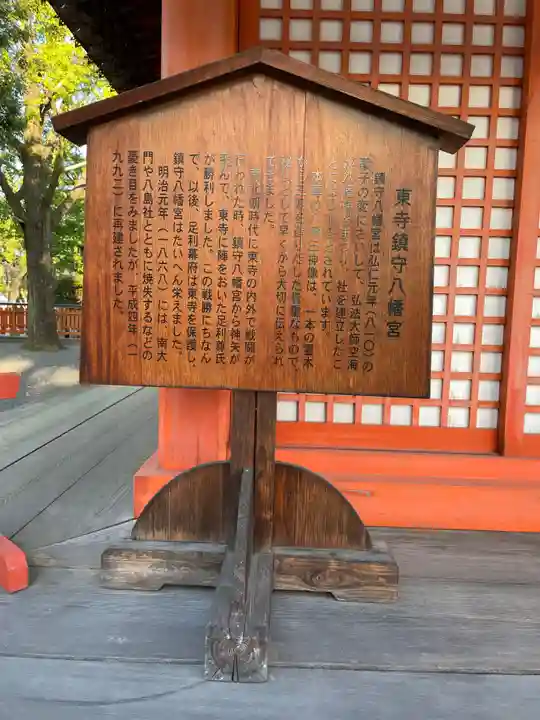 東寺鎮守八幡宮
鎮守八幡宮は弘仁元年(八一〇)の
薬子の変にさいして、弘法大師空海
社を建立したこ
とされています。
神像は、一本の霊木
貴重なもので、
として早くから大切に伝えられ
てきました。
南北朝時代に東寺の内外で戦闘が
行われた時、鎮守八幡宮から神矢が
飛んで、東寺に陣をおいた足利尊氏
が勝利しました。この戦勝にちなん
で、以後、足利幕府は東寺を保護し、
鎮守八幡宮はたいへん栄えました。
明治元年(一八六八)には、南大
門や八島社とともに焼失するなどの
憂き目をみましたが、平成四年(一
九九二)に再建されました。